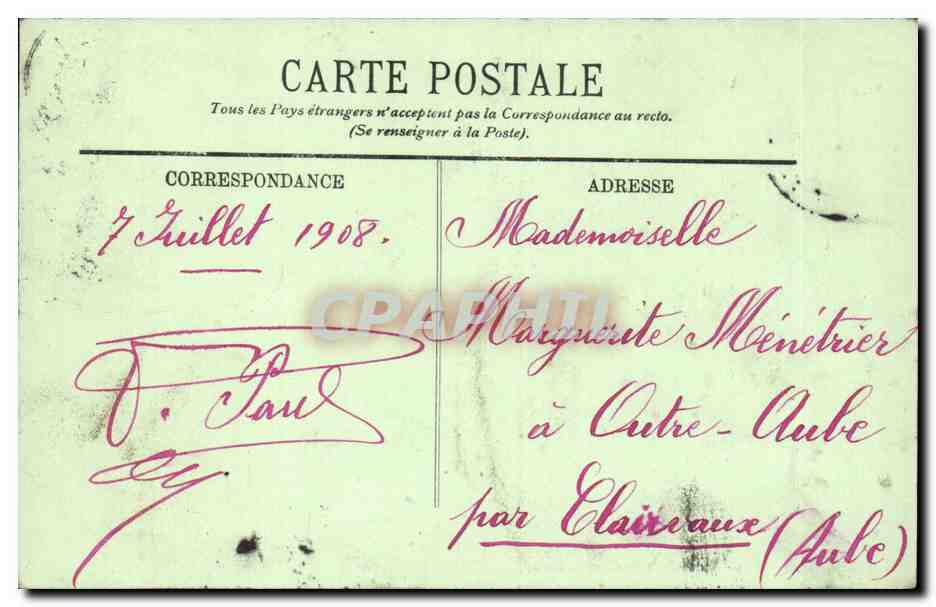 CARTE POSTALE
Tous les Pays étrangers n'acceptent pas la Correspondance au recto.
(Se renseigner à la Poste).
CORRESPONDANCE
7 Juillet 1908.
Paul
ADRESSE
Mademoiselle
Marguerite Ménétrier
à Outre-Aube
par Clairvaux
(Aube)
CPAPHIL